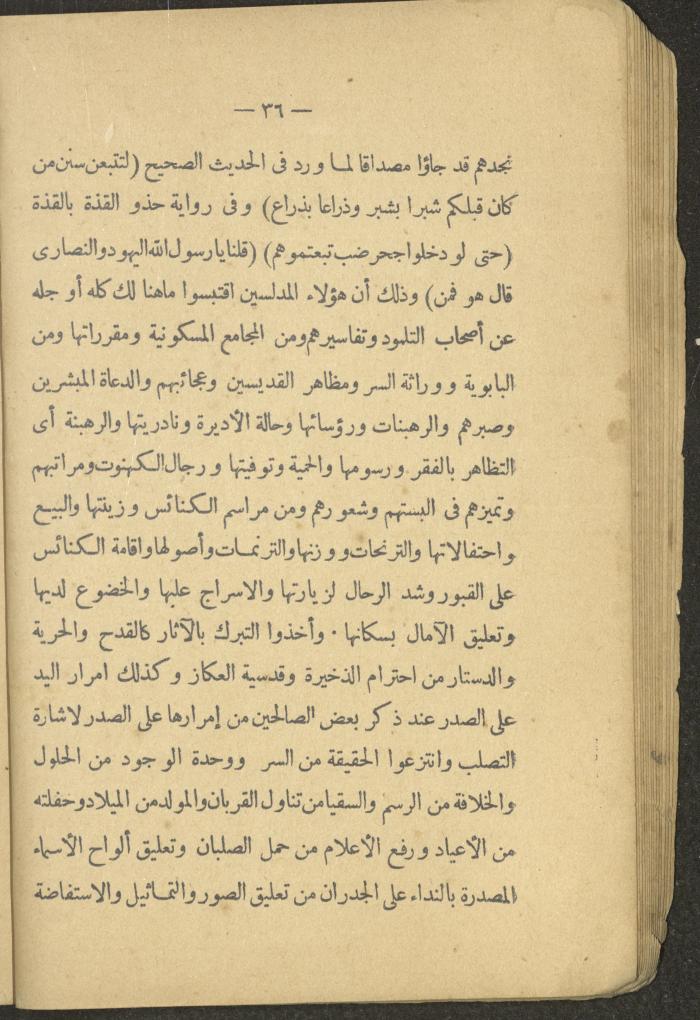 — ٣٦ —
نجدهم قد جاؤا مصداقا لما ورد فى الحديث الصحيح (لتتبعن سنن من
كان قبلكم شبرا بشبر وذراعا بذراع) وفى رواية حذو القذة بالقذة
(حتى لو دخلوا جحر ضب تبعتموهم) (قلنا يارسول الله اليهود والنصارى
قال هو فمن) وذلك أن هؤلاء المدلسين اقتبسوا ماهنا لك كله أو جله
عن أصحاب التلمود وتفاسيرهم ومن المجامع المسكونية ومقرراتها ومن
البابوية ووراثة السر ومظاهر القديسين وعجائبهم والدعاة المبشرين
وصبرهم والرهبنات ورؤسائها وحالة الأديرة ونادريتها والرهبنة أى
التظاهر بالفقر ورسومها والحمية وتوفيتها ورجال الكهنوت ومراتبهم
وتميزهم فى البستهم وشعورهم ومن مراسم الكنائس وزينتها والبيع
واحتفالاتها والترنحات ووزنها والترنمات وأصولها واقامة الكنائس
على القبور وشد الرحال لزيارتها والاسراج عليها والخضوع لديها
وتعليق الآمال بسكانها . وأخذوا التبرك بالآثار كالقدح والحرية
والدستار من احترام الذخيرة وقدسية العكاز وكذلك امرار اليد
على الصدر عند ذكر بعض الصالحين من إمرارها على الصدر لاشارة
التصلب وانتزعوا الحقيقة من السر ووحدة الوجود من الحلول
والخلافة من الرسم والسقيا من تناول القربان والمولد من الميلاد وحفلته
من الأعياد ورفع الأعلام من حمل الصلبان وتعليق ألواح الأسماء
المصدرة بالنداء على الجدران من تعليق الصور والتماثيل والاستفاضة